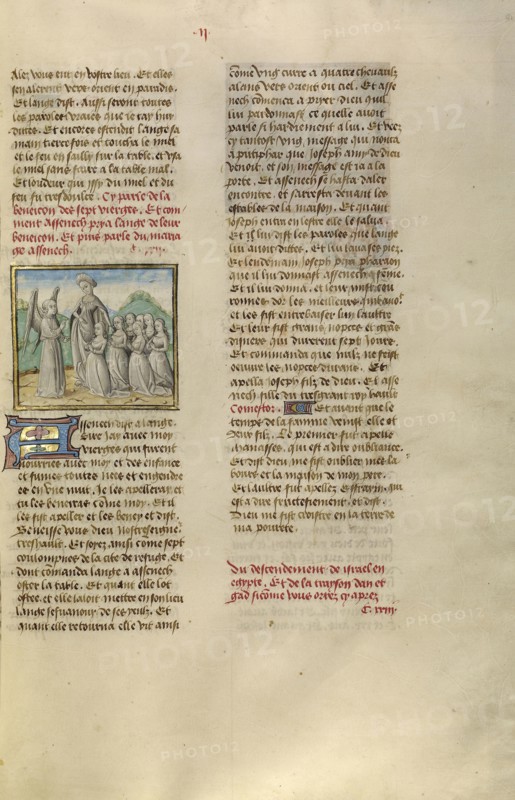 .II.
Alez vous ent en vostre lieu. Et elles
sen alerent vers orient en paradis.
Et lange dist. Aussi seront toutes
les paroles vraies que ie tay huy
dittes. Et encores estendit lange sa
main tierce fois et toucha le miel
et le feu en sailly sur la table. et usa
le miel sans faire a la table mal.
Et lodeur qui yssy du miel et du
feu fu tresdoulce. Cy parle de la
beneicon des sept vierges. Et com
ment assenech prya lange de leur
beneicon. Et puis parle du maria
ge assenech. C. xxii.
Assenech dist a lange.
Sire iay avec moy
vierges qui furent
nourries avec moy et des enfance
et fumes toutes nees et engendre
es en une nuit. Je les apelleray et
tu les beneiras come moy. Et il
les fist apeller et les beney et dist.
Beneisse vous dieu nostre seigne
treshault. Et soyez ainsi come sept
coulompnes de la cite de refuge. Et
dont comanda lange a assenech
oster la table. Et quant elle lot
ostee et elle aloit mettre en son lieu
lange sesvanoy de ses yeulz. Et
quant elle retourna elle vit ainsi
come ung curre a quatre chevaulz
alans vers orient ou ciel. Et asse
nech comenca a pryer dieu quil
lui pardonnast ce quelle avoit
parle si hardiement a lui. Et veez
cy tantost ung message qui nonca
a putiphar que Joseph amy de dieu
venoit. et son message est ia a la
porte. Et assenech se hasta daler
encontre. et sarresta devant les
estables de la maison. Et quant
Joseph entra en lostre elle le salua.
Et il lui dist les paroles que lange
lui avoit dittes. Et lui lava ses piez.
Et lendemain Joseph prya pharaon
que il lui donnast assenech a feme.
Et il lui donna. et leur mist cou
ronnes dor les meilleures quil avoit
et les fist entrebaisier lun laultre
Et leur fist grans nopces et grās
disners qui durerent sept jours.
Et commanda que nulz ne feist
oeuvre les nopces durans. Et
apella Joseph filz de dieu. Et asse
nech fille du tresgrant roy hault
Comestor. Et avant que le
temps de la famine venist elle ot
deux filz. Le premier fut apelle
manasses. qui est a dire oubliance.
Et dist dieu me fist oublier mes la
bours et la maison de mon pere.
Et laultre fut apellez Effraym. qui
est a dire fructefiement. et dist.
Dieu me fist croistre en la terre de
ma povrete.
Du descendement de israel en
egypte. Et de la trayson dan et
gad si come vous orrez cy apres
C. xxiii.